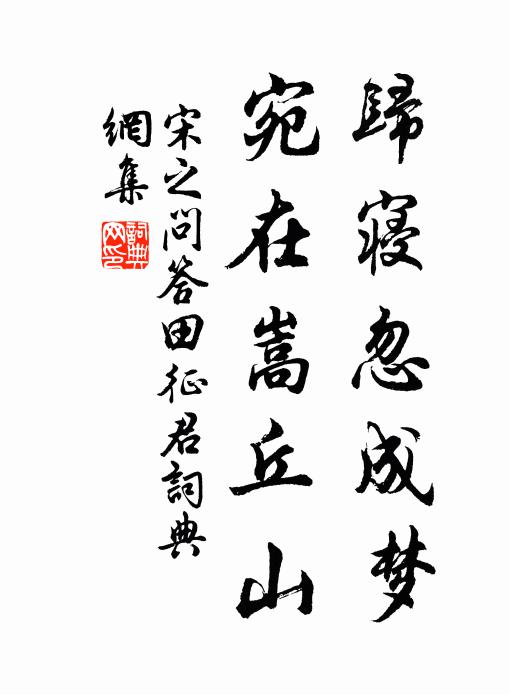 歸寢忽成梦
宛在嵩丘山
宋之问答田征君詞典
網集
詞典
网印